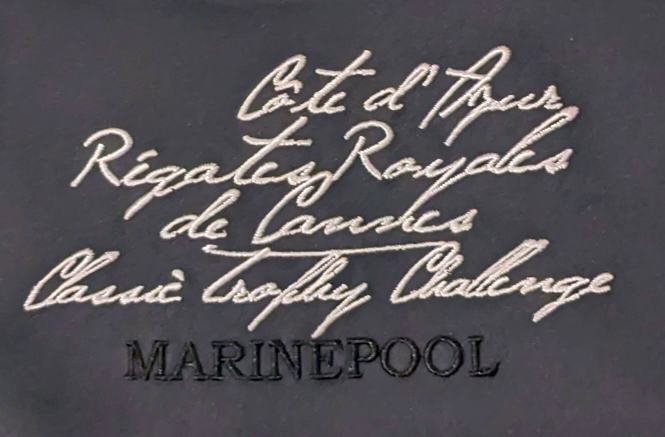 Côte d'Azur
Régates Royales
de Cannes
Classic Trophy Challenge
MARINEPOOL